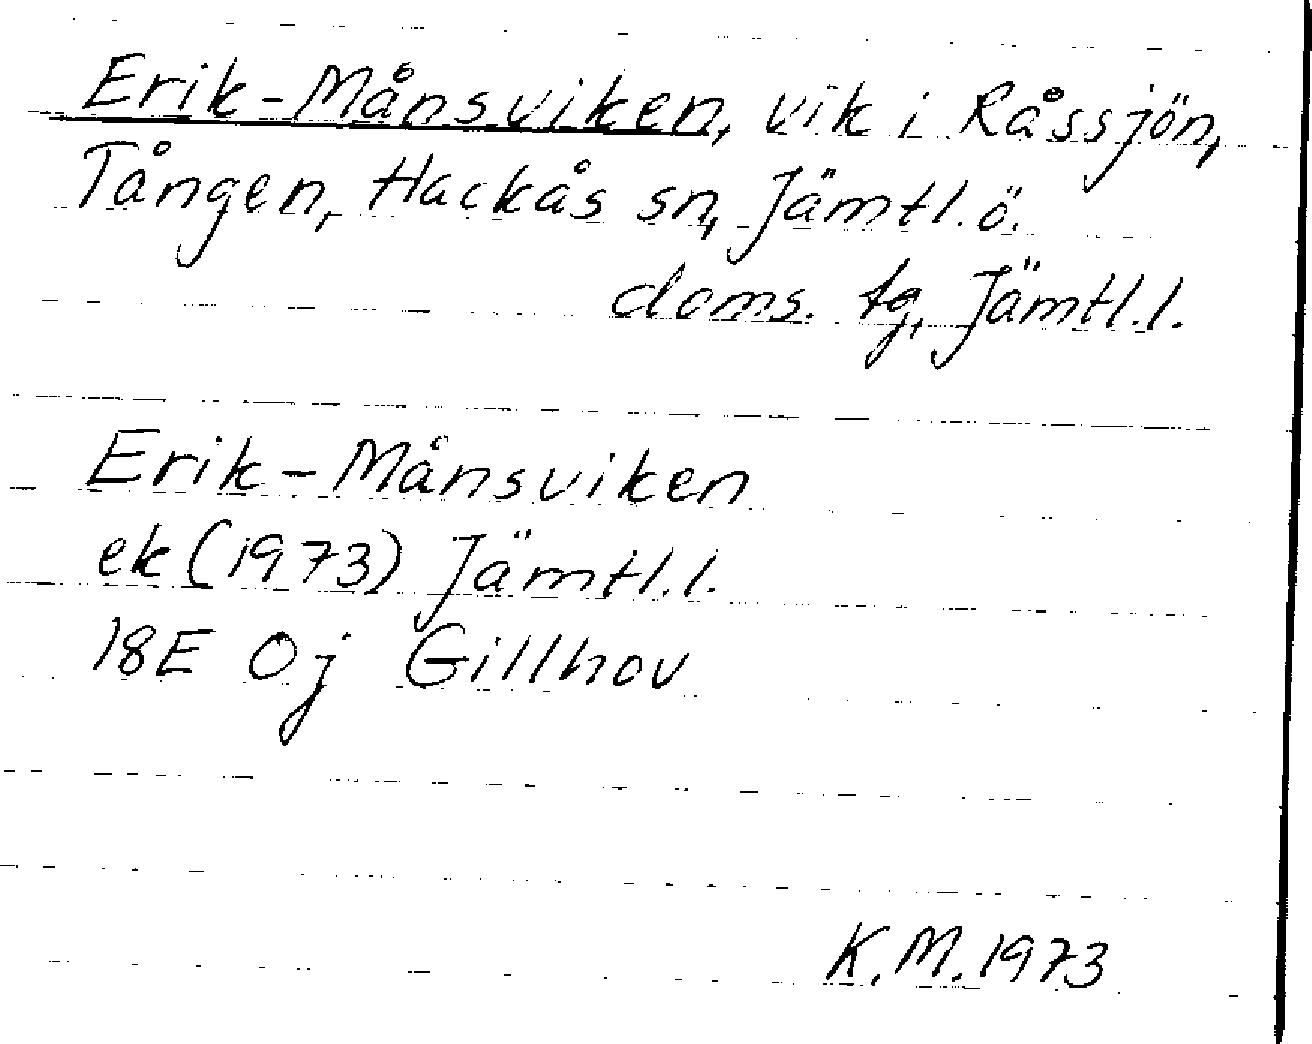 Erik-Månsviken, vik i Råssjön,
Tången, Hackås sn, Jämtl. ö.
doms. tg, Jämtl. l.
Erik-Månsviken
ek (1973) Jämtl. l.
18E Oj Gillhov
K. M. 1973